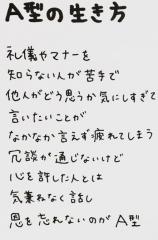 A型の生き方
礼儀やマナーを
知らない人が苦手で
他人がどう思うか気にしすぎて
言いたいことが
なかなか言えず疲れてしまう
冗談が通じないけど
心を許した人とは
気兼ねなく話し
恩を忘れないのが A型